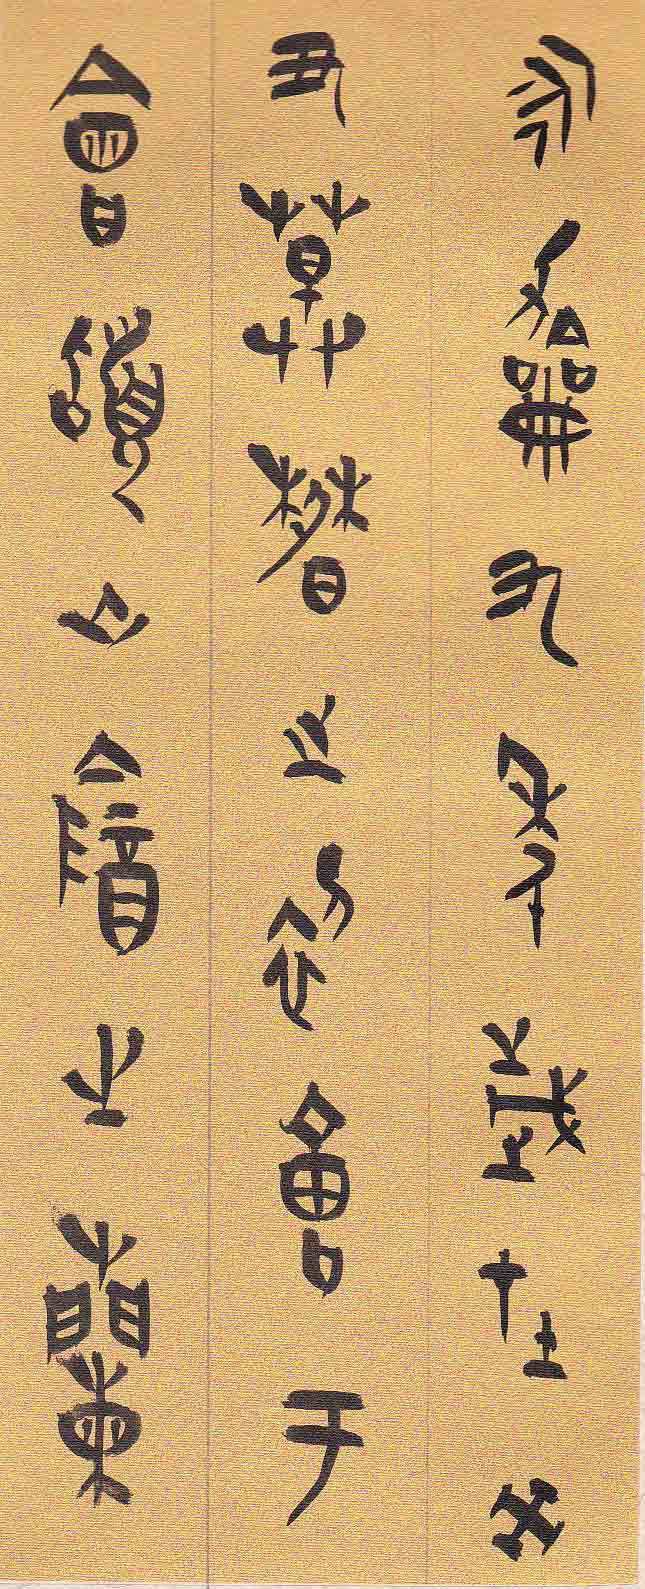 永龢九年歲在癸
丑莫春之初會于
會稽山陰之蘭